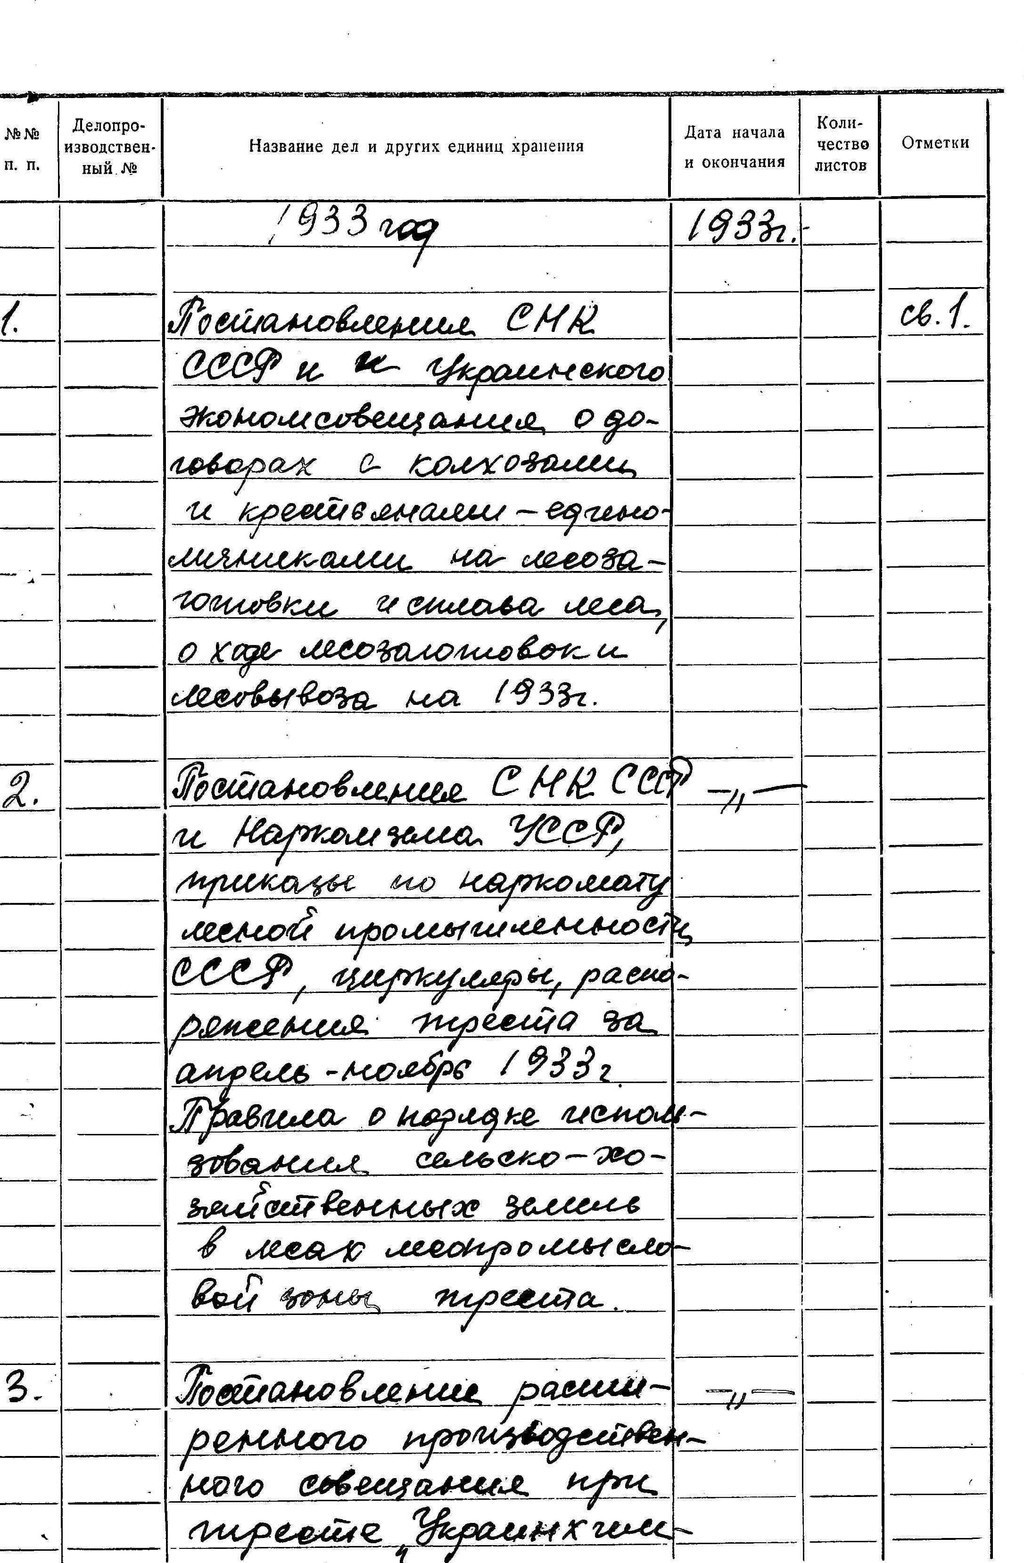 №№ п. п. Делопро- изводствен- ный № Название дел и других единиц хранения Дата начала и окончания Коли- чество листов Отметки
1933 год 1933г.
1. Постановления СНК св.1.
СССР и Украинского
экономсовещания о до-
говорах с колхозами
и крестьянами-едино-
личниками на лесоза-
готовки и сплава леса,
о ходе лесозаготовок и
лесовывоза на 1933г.
2. Постановления СНК СССР —„—
и Наркомзема УССР,
приказы по наркомату
лесной промышленности
СССР, циркуляры, распо-
ряжения треста за
апрель-ноябрь 1933г.
Правила о порядке исполь-
зования сельско-хо-
зяйственных земель
в лесах леспромыслo-
вой зоны треста.
3. Постановление расши- —„—
ренного производствен-
ного совещания при
тресте „Украинхим-